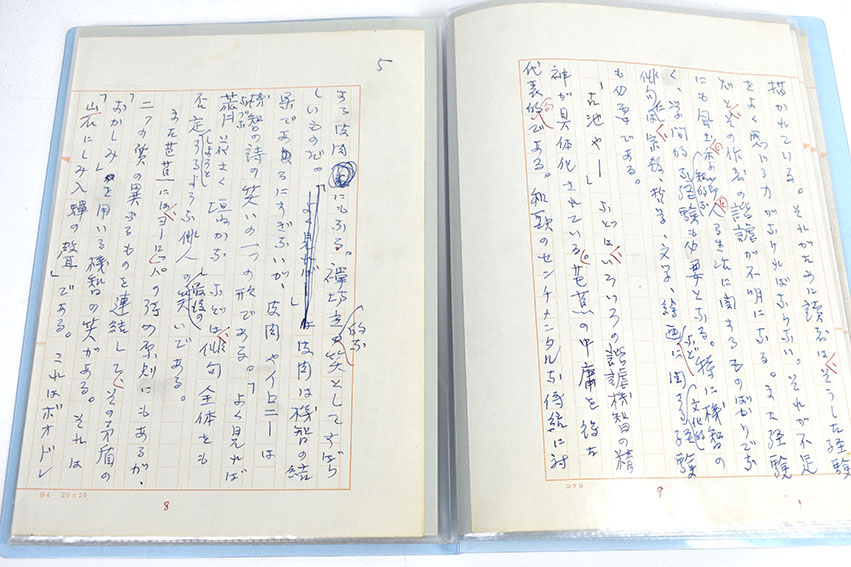 5
する皮肉にもなる。的な笑としてすばら
しいものだ。皮肉は機智の結
果であるにすぎないが、皮肉やイロニーは
機智の詩の笑いの一つの形である。「よく見れば
花さく垣かな」などは俳句全体とも
否定しようとするような俳人の最後の笑いである。
また芭蕉にはヨーロッパの詩の原則にもあるが、
二つの質の異なるものを連結してその矛盾の
「おかしみ」を用いる機智の笑がある。それは
岩にしみ入蝉の聲」である。これはボオドレ
B4 20×20
8
描かれている。それがために読者はそうした経験
をよく思いやる力がなければならない。それが不足
だとその作者の諧謔が不明になる。また経験
にも風土や季節や生活に関するものばかりでな
く、学問的な経験も必要となる。特に機智の
俳句は宗教、哲学、文学、絵画などに関する文化的経験
も必要である。
「古池や」などはいろいろの諧謔機智の精
神が具体化されている。芭蕉の中庸を得た
代表的句である。和歌のセンチメンタルな伝統に対
コクヨ
9